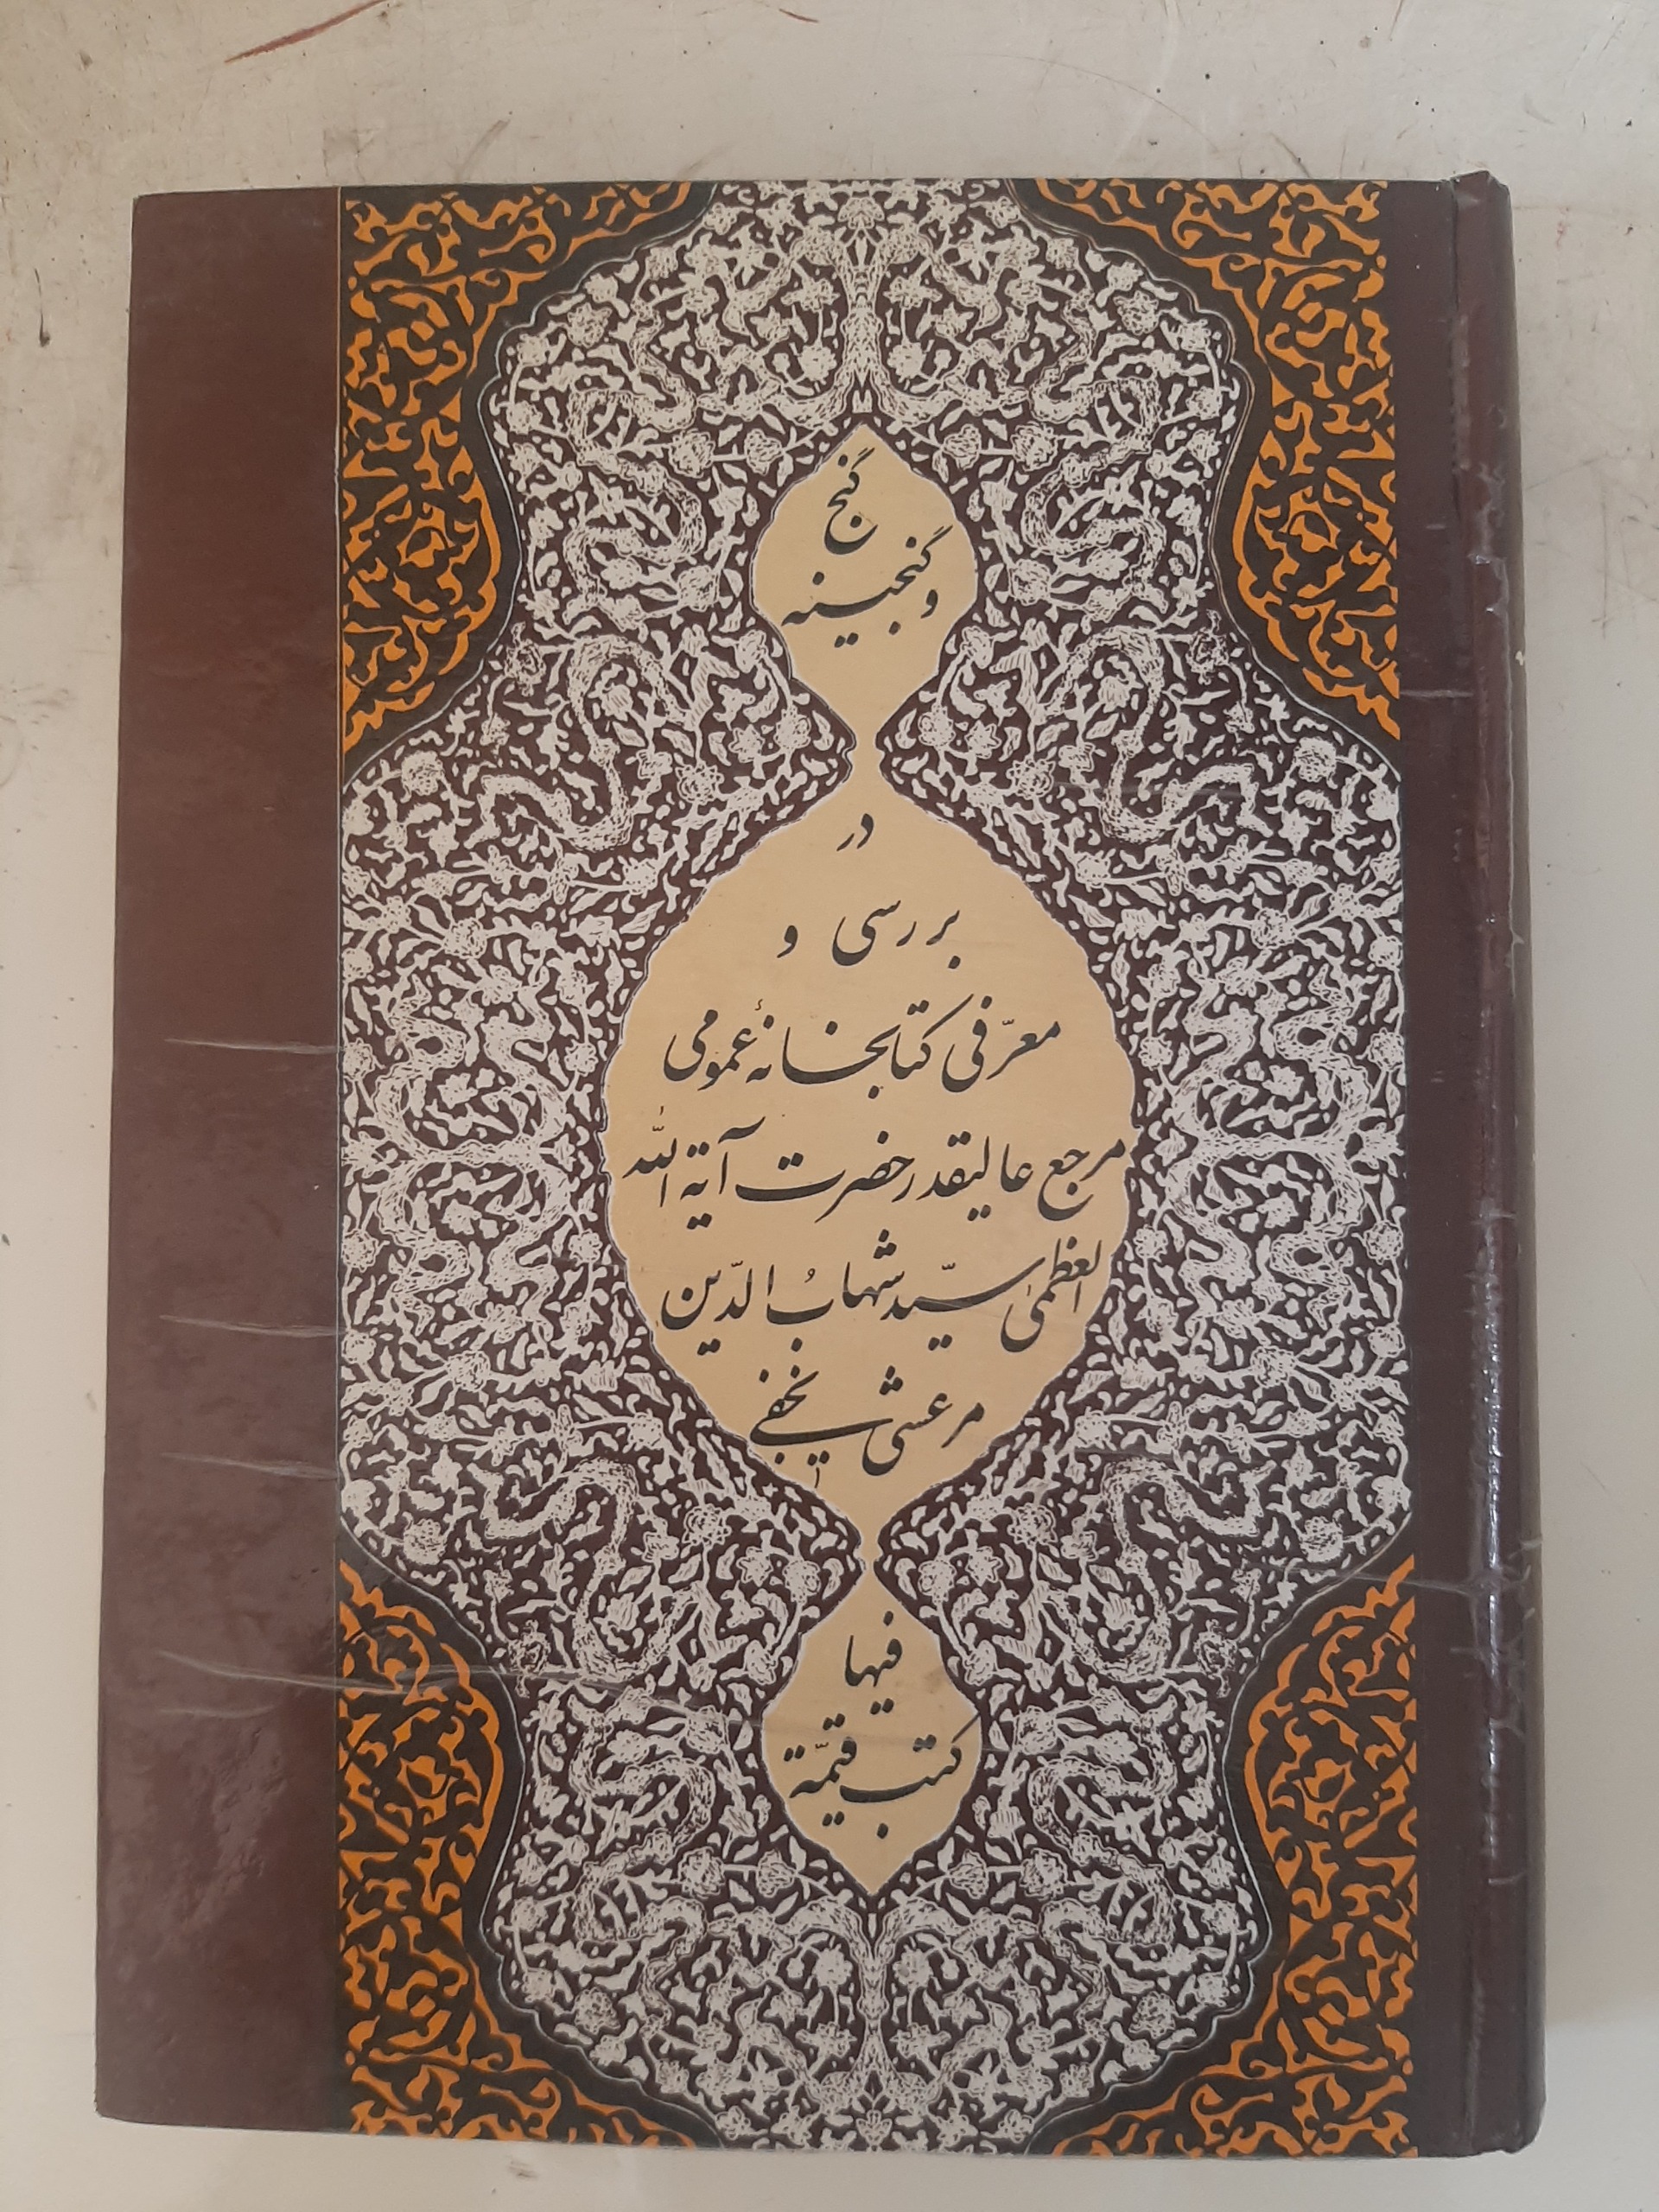 گنج
و گنجینه
در
بررسی و
معرّفی کتابخانهٔ عمومی
مرجع عالیقدر حضرت آیة اللّه
العظمیٰ سیّد شهابُ الدّین
مرعشی نجفی
فیها
کتب قیّمة